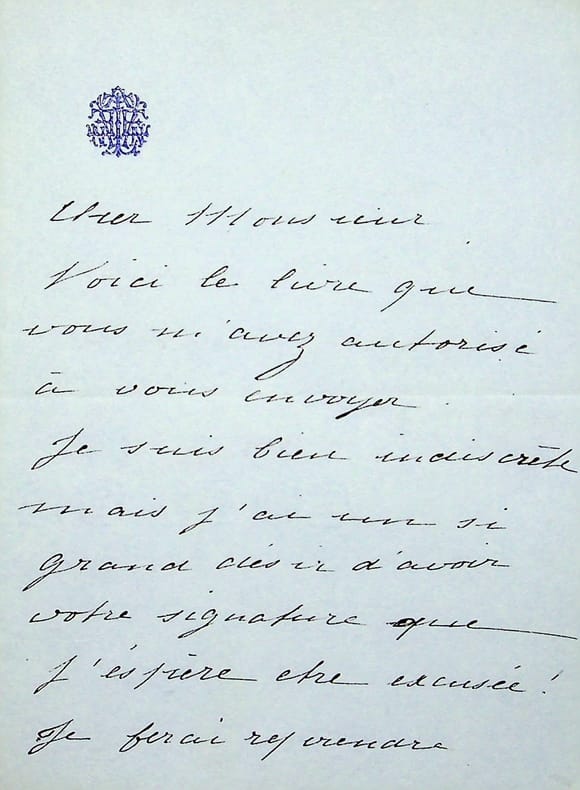 Cher Monsieur
Voici le livre que
vous m'avez autorisé
à vous envoyer.
Je suis bien indiscrète
mais j'ai un si
grand désir d'avoir
votre signature que
j'éspère etre excusée!
Je ferai reprendre